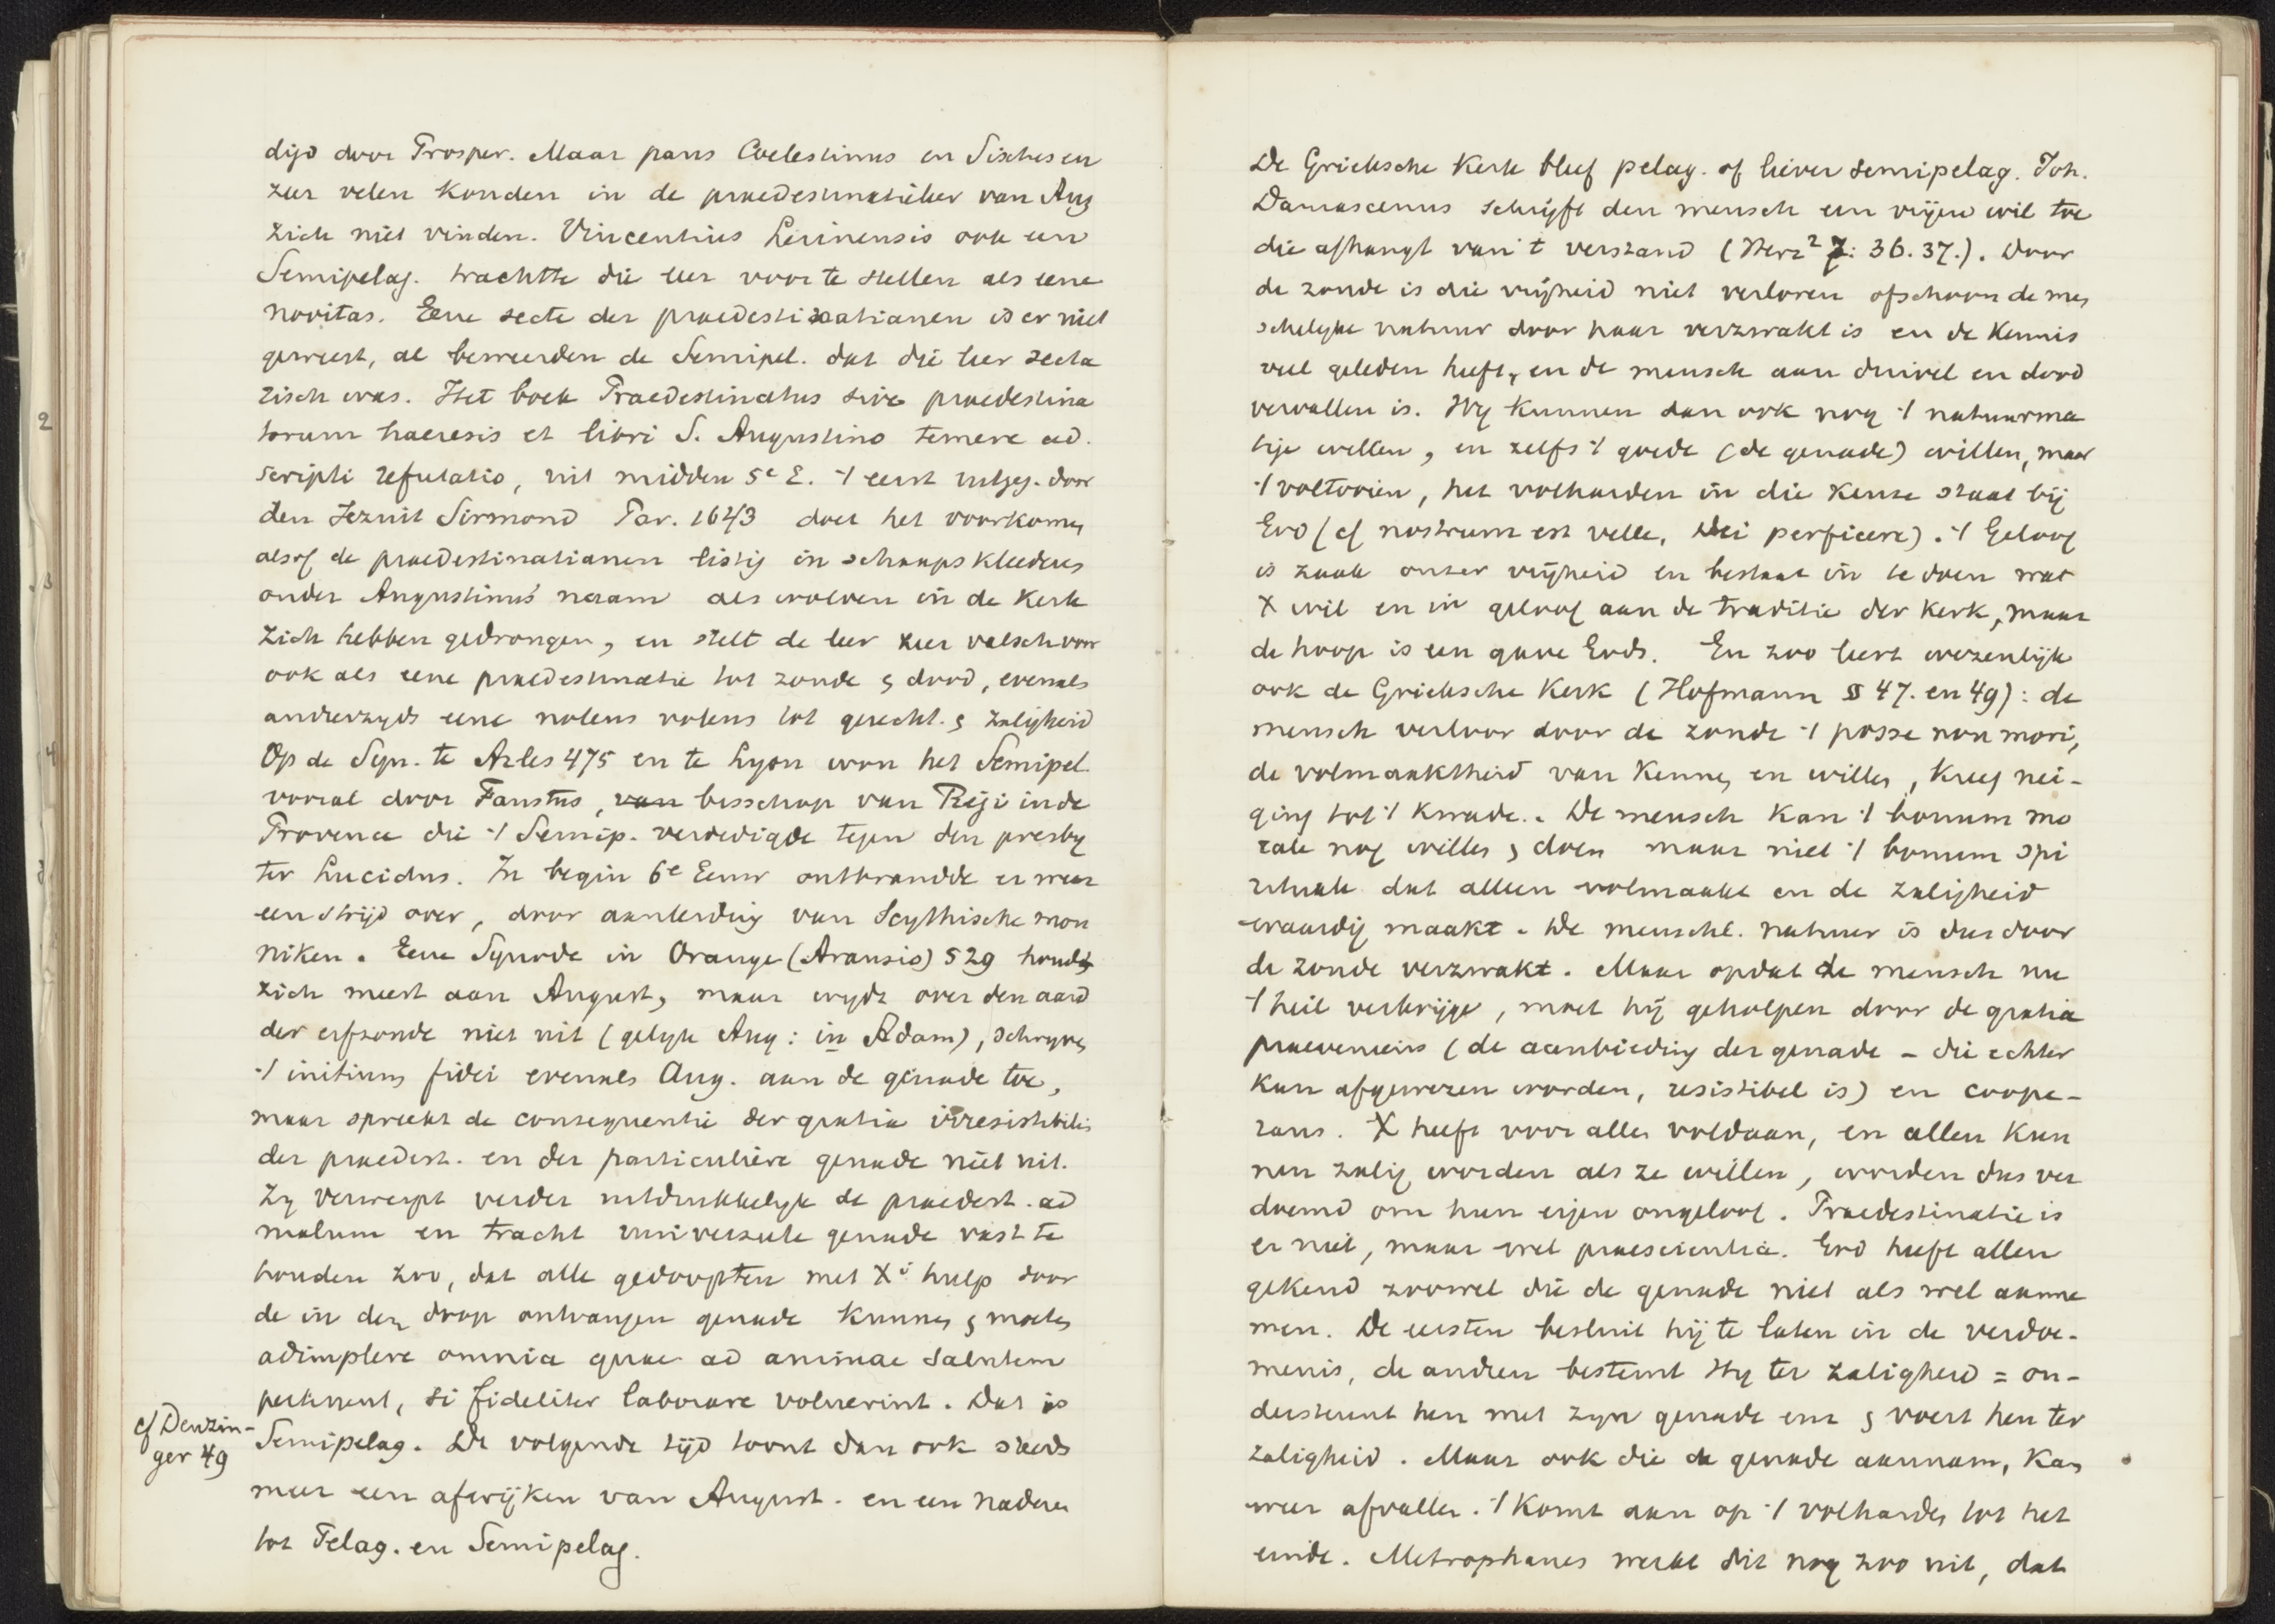 digd door Prosper. Maar paus Coelestinus en
zeer velen konden in de praedestinatieleer van Aug
zich niet vinden. Vincentius Lerinensis ook een
Semipelag. trachtte die leer voor te stellen als eene
novitas. Eene secte der praedestinatianen is er niet
geweest, al beweerden de Semipel. dat die leer secta
risch was. Het boek Praedestinatus sive praedestina
torum haeresis et libri S. Augustino temere ad.
scripti refutatio, uit midden 5e E. 't eerst uitgeg. door
den Jezuit Sirmond Par. 1643 doet het voorkomen
alsof de praedestinatianen listig in schaapskleederen
onder Augustinus' naam als wolven in de Kerk
zich hebben gedrongen, en stelt de leer zeer valsch voor
ook als eene praedestinatie tot zonde & dood, evenals
anderzyds eene nolens volens tot gerecht. & zaligheid
Op de Syn. te Arles 475 en te Lyon won het Semipel.
vooral door Faustus, van bisschop van Reji in de
Provence die 't Semip. verdedigde tegen den presby
ter Lucidus. In begin 6e Eeuw ontbrandde er weer
een strijd over, door aanleiding van Scythische mon
niken. Eene Synode in Orange (Aransio) 529 houdt
zich meest aan August, maar wydt over den aard
der erfzonde niet uit (gelyk Aug: in Adam), schryft
't initium fidei evenals Aug. aan de genade toe,
maar spreekt de consequentie der gratia irresistibilis
der praedest. en der particuliere genade niet uit.
Zy verwerpt verder uitdrukkelyk de praedest. ad
malum en tracht universeele genade vast te
houden zoo, dat alle gedoopten met Xi hulp door
de in den doop ontvangen genade kunnen & moeten
adimplere omnia quae ad animae salutem
pertinent, si fideliter laborare voluerint. Dat is
cf Denzin-
ger 49
Semipelag. De volgende tijd toont dan ook steeds
meer een afwijken van August. en een naderen
tot Pelag. en Semipelag.
De Grieksche Kerk bleef pelag. of liever semipelag. Joh.
Damascenus schrijft den mensch een vrijen wil toe
die afhangt van 't verstand (Herz² 7: 36. 37.). Door
de zonde is die vrijheid niet verloren ofschoon de men
schelyke natuur door haar verzwakt is en de kennis
veel geleden heeft, en de mensch aan duivel en dood
vervallen is. Wy kunnen dan ook nog 't natuurma
tige willen, en zelfs 't goede (de genade) willen, maar
't voltooien, het volharden in die keuze staat bij
God (cf nostrum est velle, Dei perficere). 't Geloof
is zaak onzer vrijheid en bestaat in te doen wat
X wil en in geloof aan de traditie der kerk, maar
de hoop is een gave Gods. En zoo leert wezenlijk
ook de Grieksche Kerk (Hofmann §§ 47. en 49): de
mensch verloor door de zonde 't posse non mori,
de volmaaktheid van kennen en willen, kreeg nei-
ging tot 't kwade. De mensch kan 't bonum mo
rale nog willen & doen maar niet 't bonum spi
rituale dat alleen volmaakt en de zaligheid
waardig maakt. De menschl. natuur is dus door
de zonde verzwakt. Maar opdat de mensch nu
't heil verkrijge, moet hij geholpen door de gratia
praeveniens (de aanbieding der genade - die echter
kan afgewezen worden, resistibel is) en coope-
rans. X heeft voor allen voldaan, en allen kun
nen zalig worden als ze willen, worden dus ver
doemd om hun eigen ongeloof. Praedestinatie is
er niet, maar wel praescientia. God heeft allen
gekend zoowel die de genade niet als wel aanne
men. De eersten besluit hij te laten in de verdoe-
menis, de andren bestemt Hy ter zaligheid = on-
dersteunt hen met zyn genade enz & voert hen ter
zaligheid. Maar ook die de genade aannam, kan
weer afvallen. 't Komt aan op 't volharden tot het
einde. Metrophanes werkt dit nog zoo uit, dat